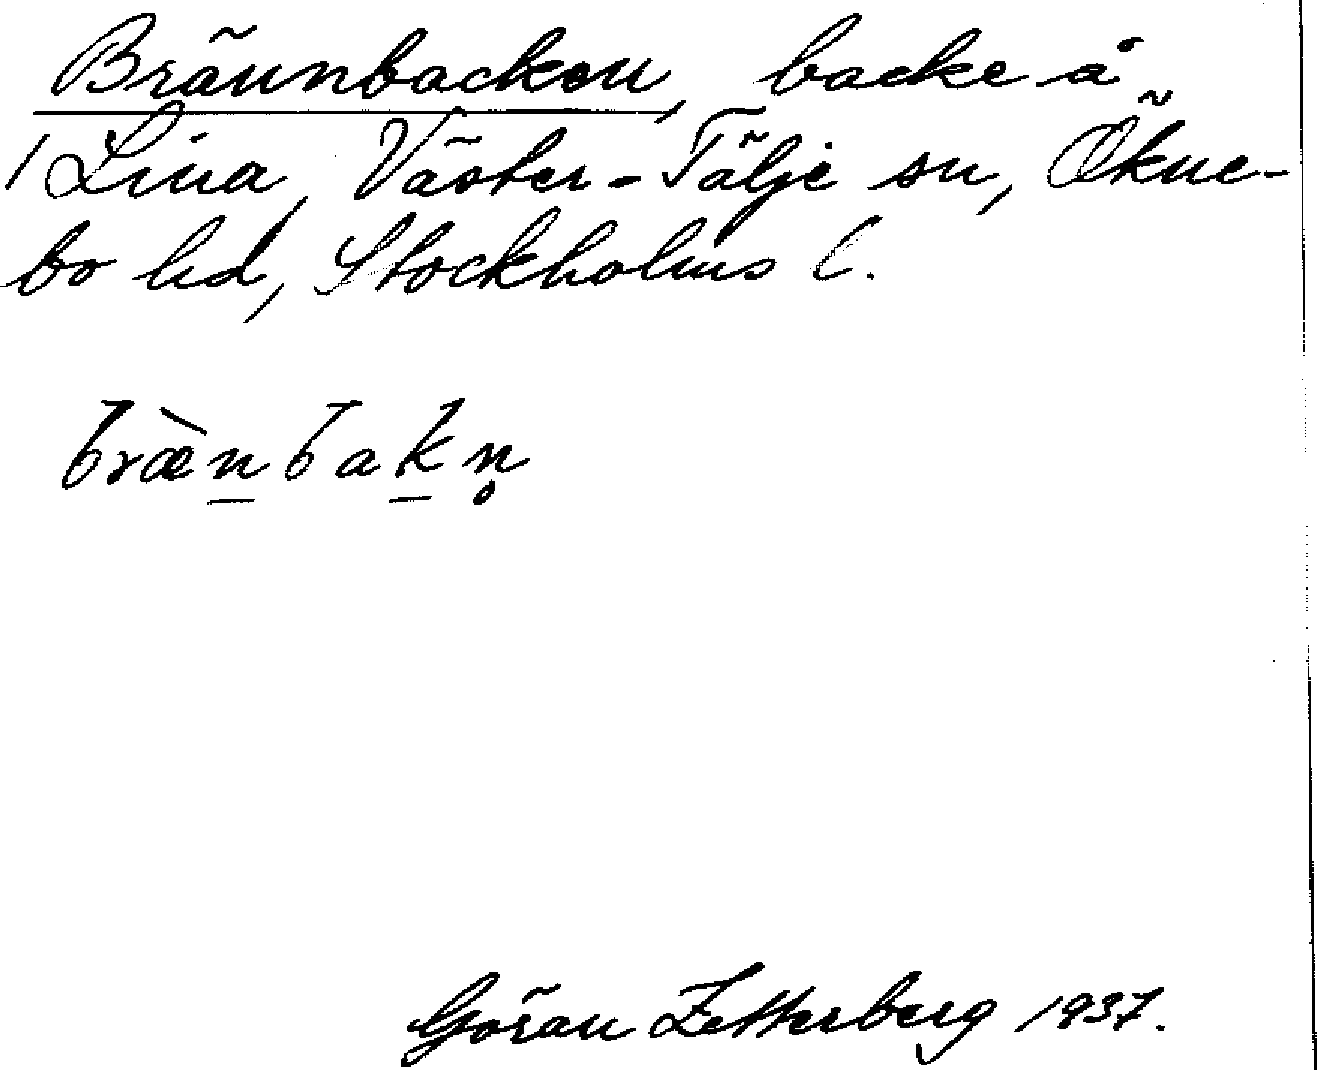 Brännbacken, backe å
/ Lina, Väster-Tälje sn, Økne-
bo hd, Stockholms l.
bræ̀n̲bak̲n̥
Göran Zetterberg 1937.